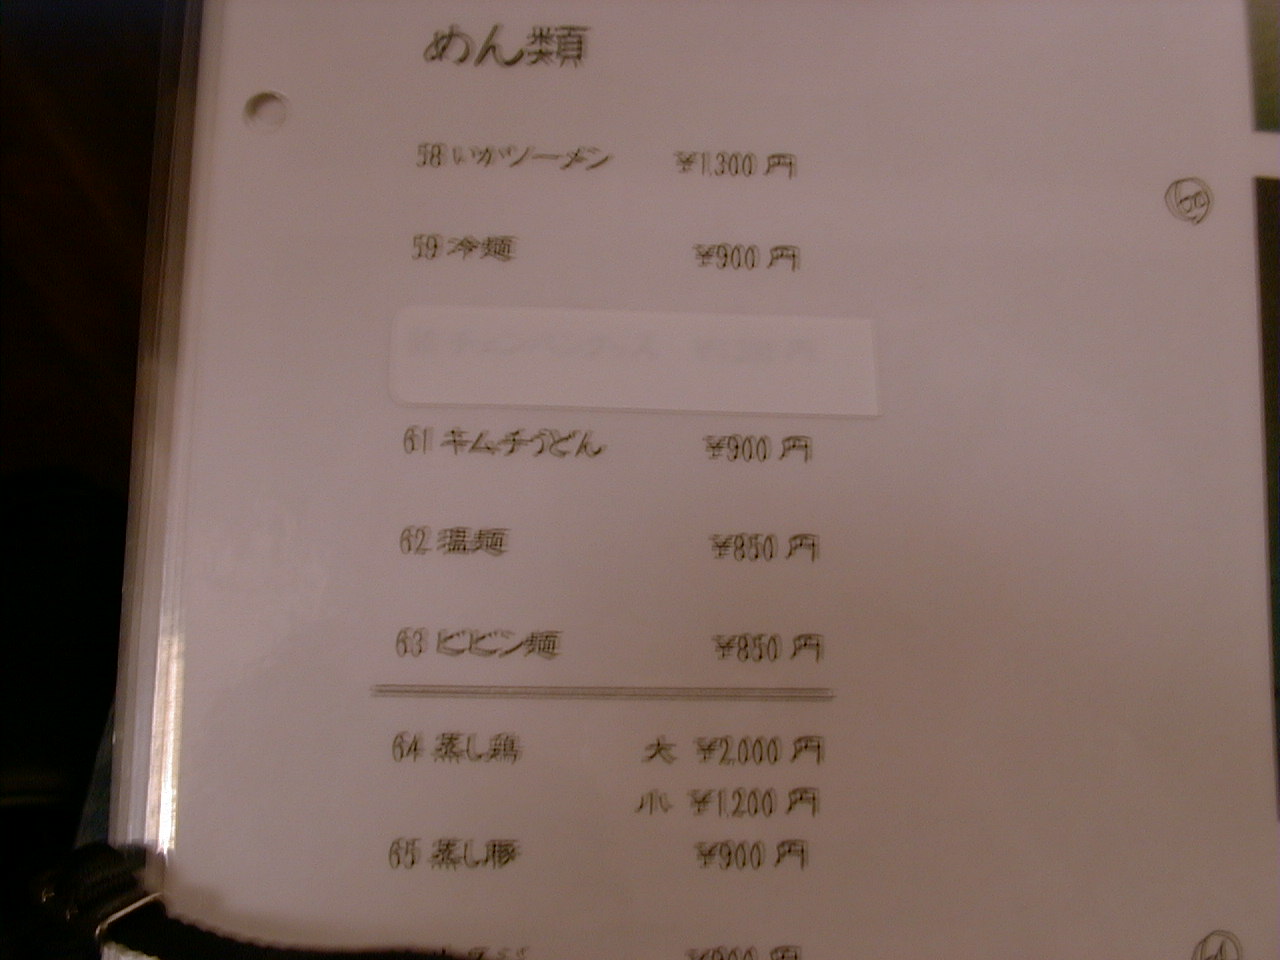 めん類
58 いかソーメン ¥1,300 円
59 冷麺 ¥900 円
61 キムチうどん ¥900 円
62 温麺 ¥850 円
63 ビビン麺 ¥850 円
64 蒸し鶏 大 ¥2,000 円
小 ¥1,200 円
65 蒸し豚 ¥900 円